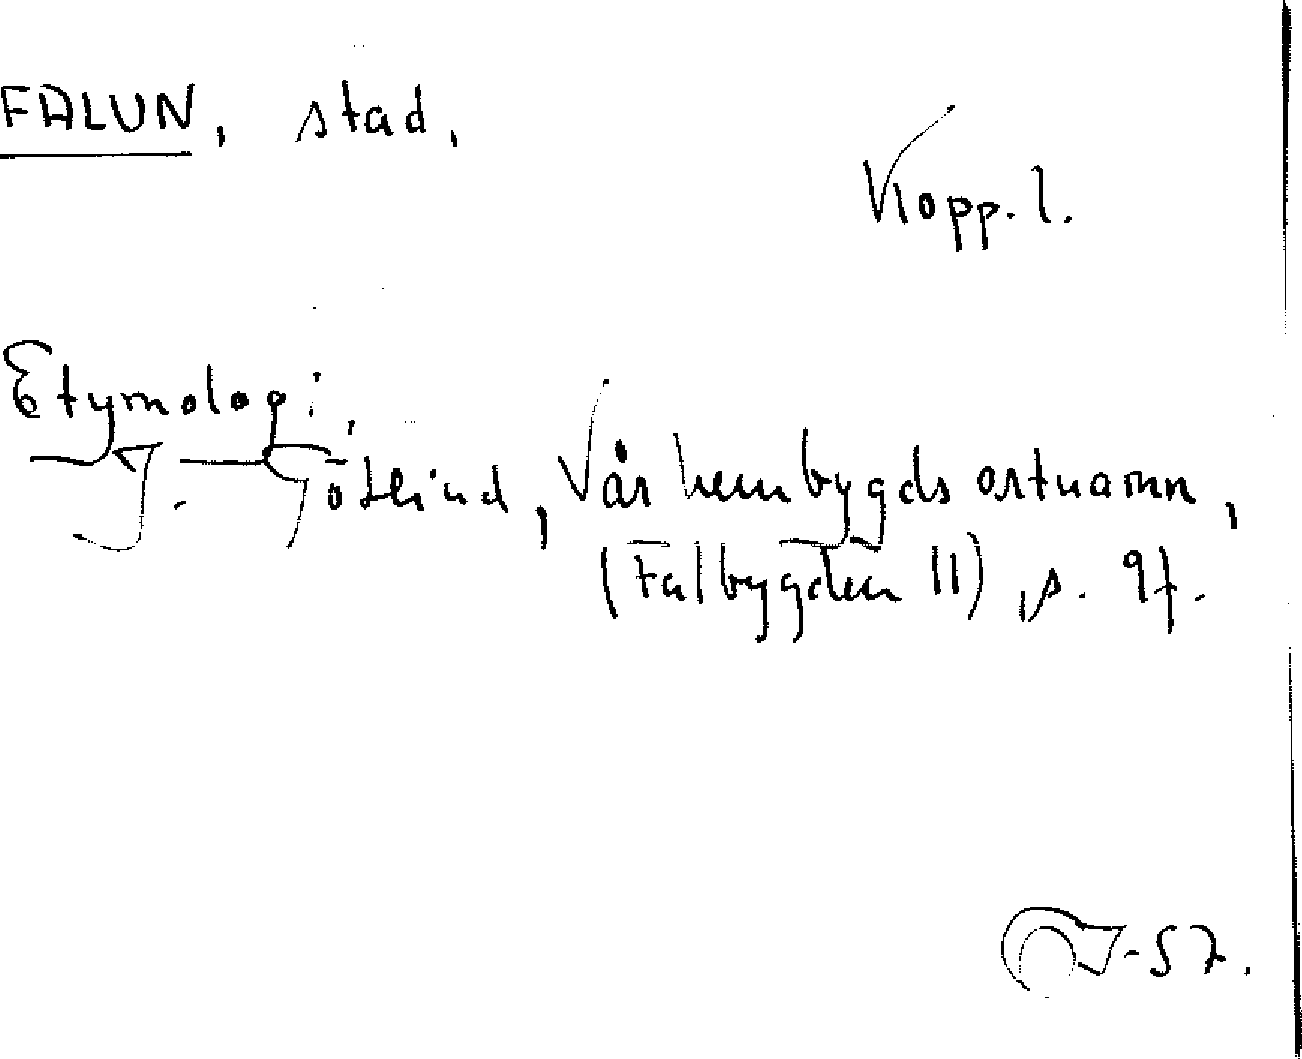 FALUN, stad.
Kopp. l.
Etymologi.
J. Götlind, Vår hembygds ortnamn,
(Falbygden 11), s. 9f.
-57.